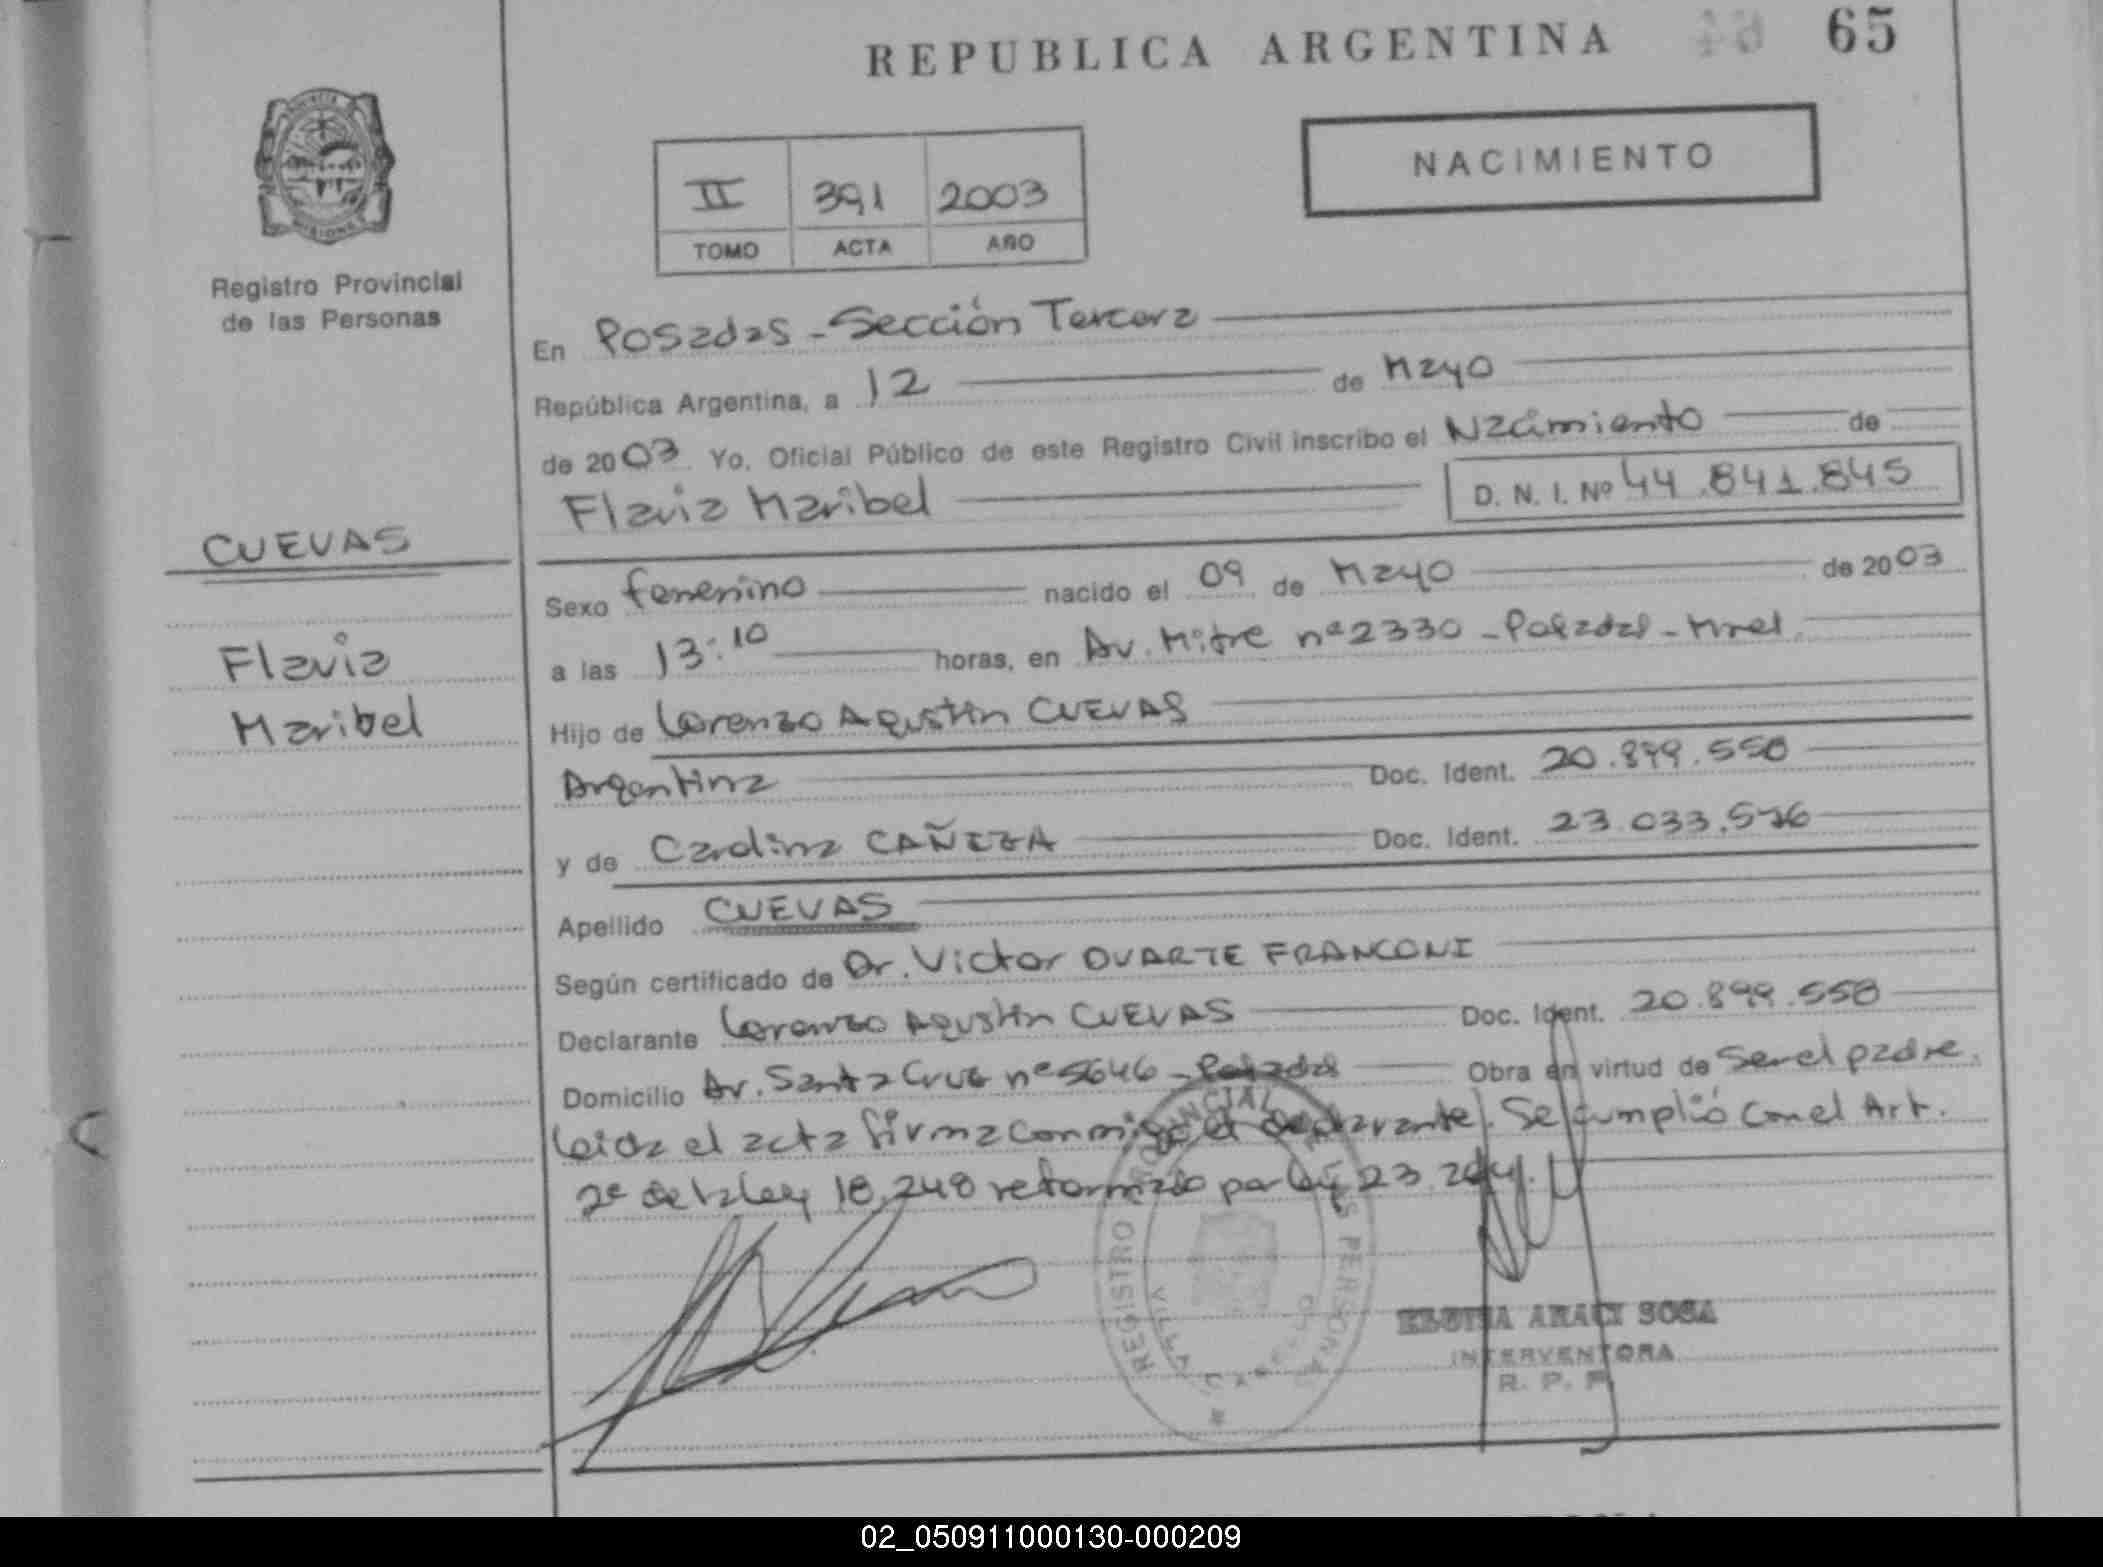 REPUBLICA ARGENTINA 65
NACIMIENTO
II 391 2003
TOMO ACTA AÑO
Registro Provincial
de las Personas
En Posadas - Sección Tercera
República Argentina, a 12 de Mayo
de 2003 Yo, Oficial Público de este Registro Civil inscribo el Nacimiento de
Flavia Maribel D. N. I. Nº 44.841.845
CUEVAS
Flavia
Maribel
Sexo femenino nacido el 09 de Mayo de 2003
a las 13:10 horas, en Av. Mitre nº 2330 - Posadas - Mnes.
Hijo de Lorenzo Agustín CUEVAS
Argentina Doc. Ident. 20.899.558
y de Carolina CAÑEZA Doc. Ident. 23.033.576
Apellido CUEVAS
Según certificado de Dr. Victor DUARTE FRANCONI
Declarante Lorenzo Agustín CUEVAS Doc. Ident. 20.899.558
Domicilio Av. Santa Cruz nº 5646 - Posadas Obra en virtud de Ser el padre.
Leida el acta firma conmigo el declarante. Se cumplió con el Art.
2º de la Ley 18.248 reformado por Ley 23.264.
REGISTRO PROVINCIAL DE LAS PERSONAS
VILLA
ARACI SOSA
INTERVENTORA
R. P. P.
02_050911000130-000209